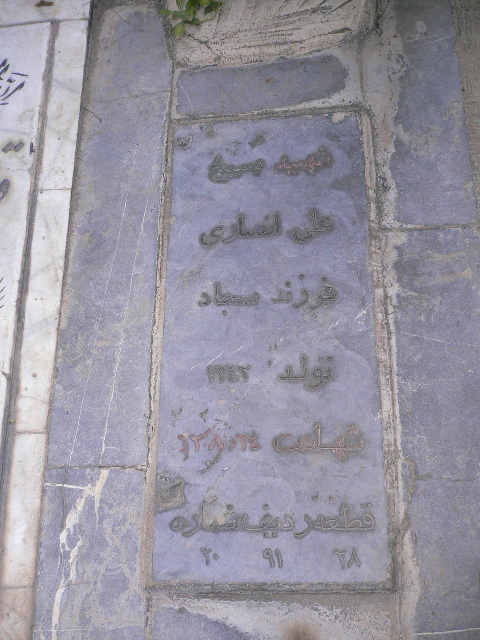 شهید بسیج
علی انصاری
فرزند سجاد
تولد ۱۳۴۲
شهادت
قطعه ردیف شماره
۲۸ ۹۱ ۲۰